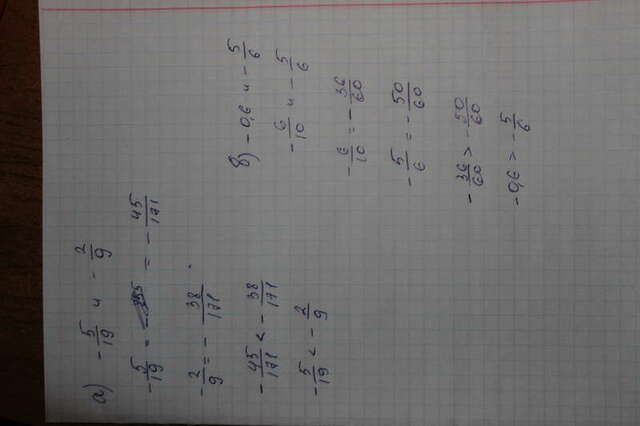 а) -5/19 и -2/9
-5/19 = = -45/171
-2/9 = -38/171
-45/171 < -38/171
-5/19 < -2/9
б) -0,6 и -5/6
-6/10 и -5/6
-6/10 = -36/60
-5/6 = -50/60
-36/60 > -50/60
-0,6 > -5/6